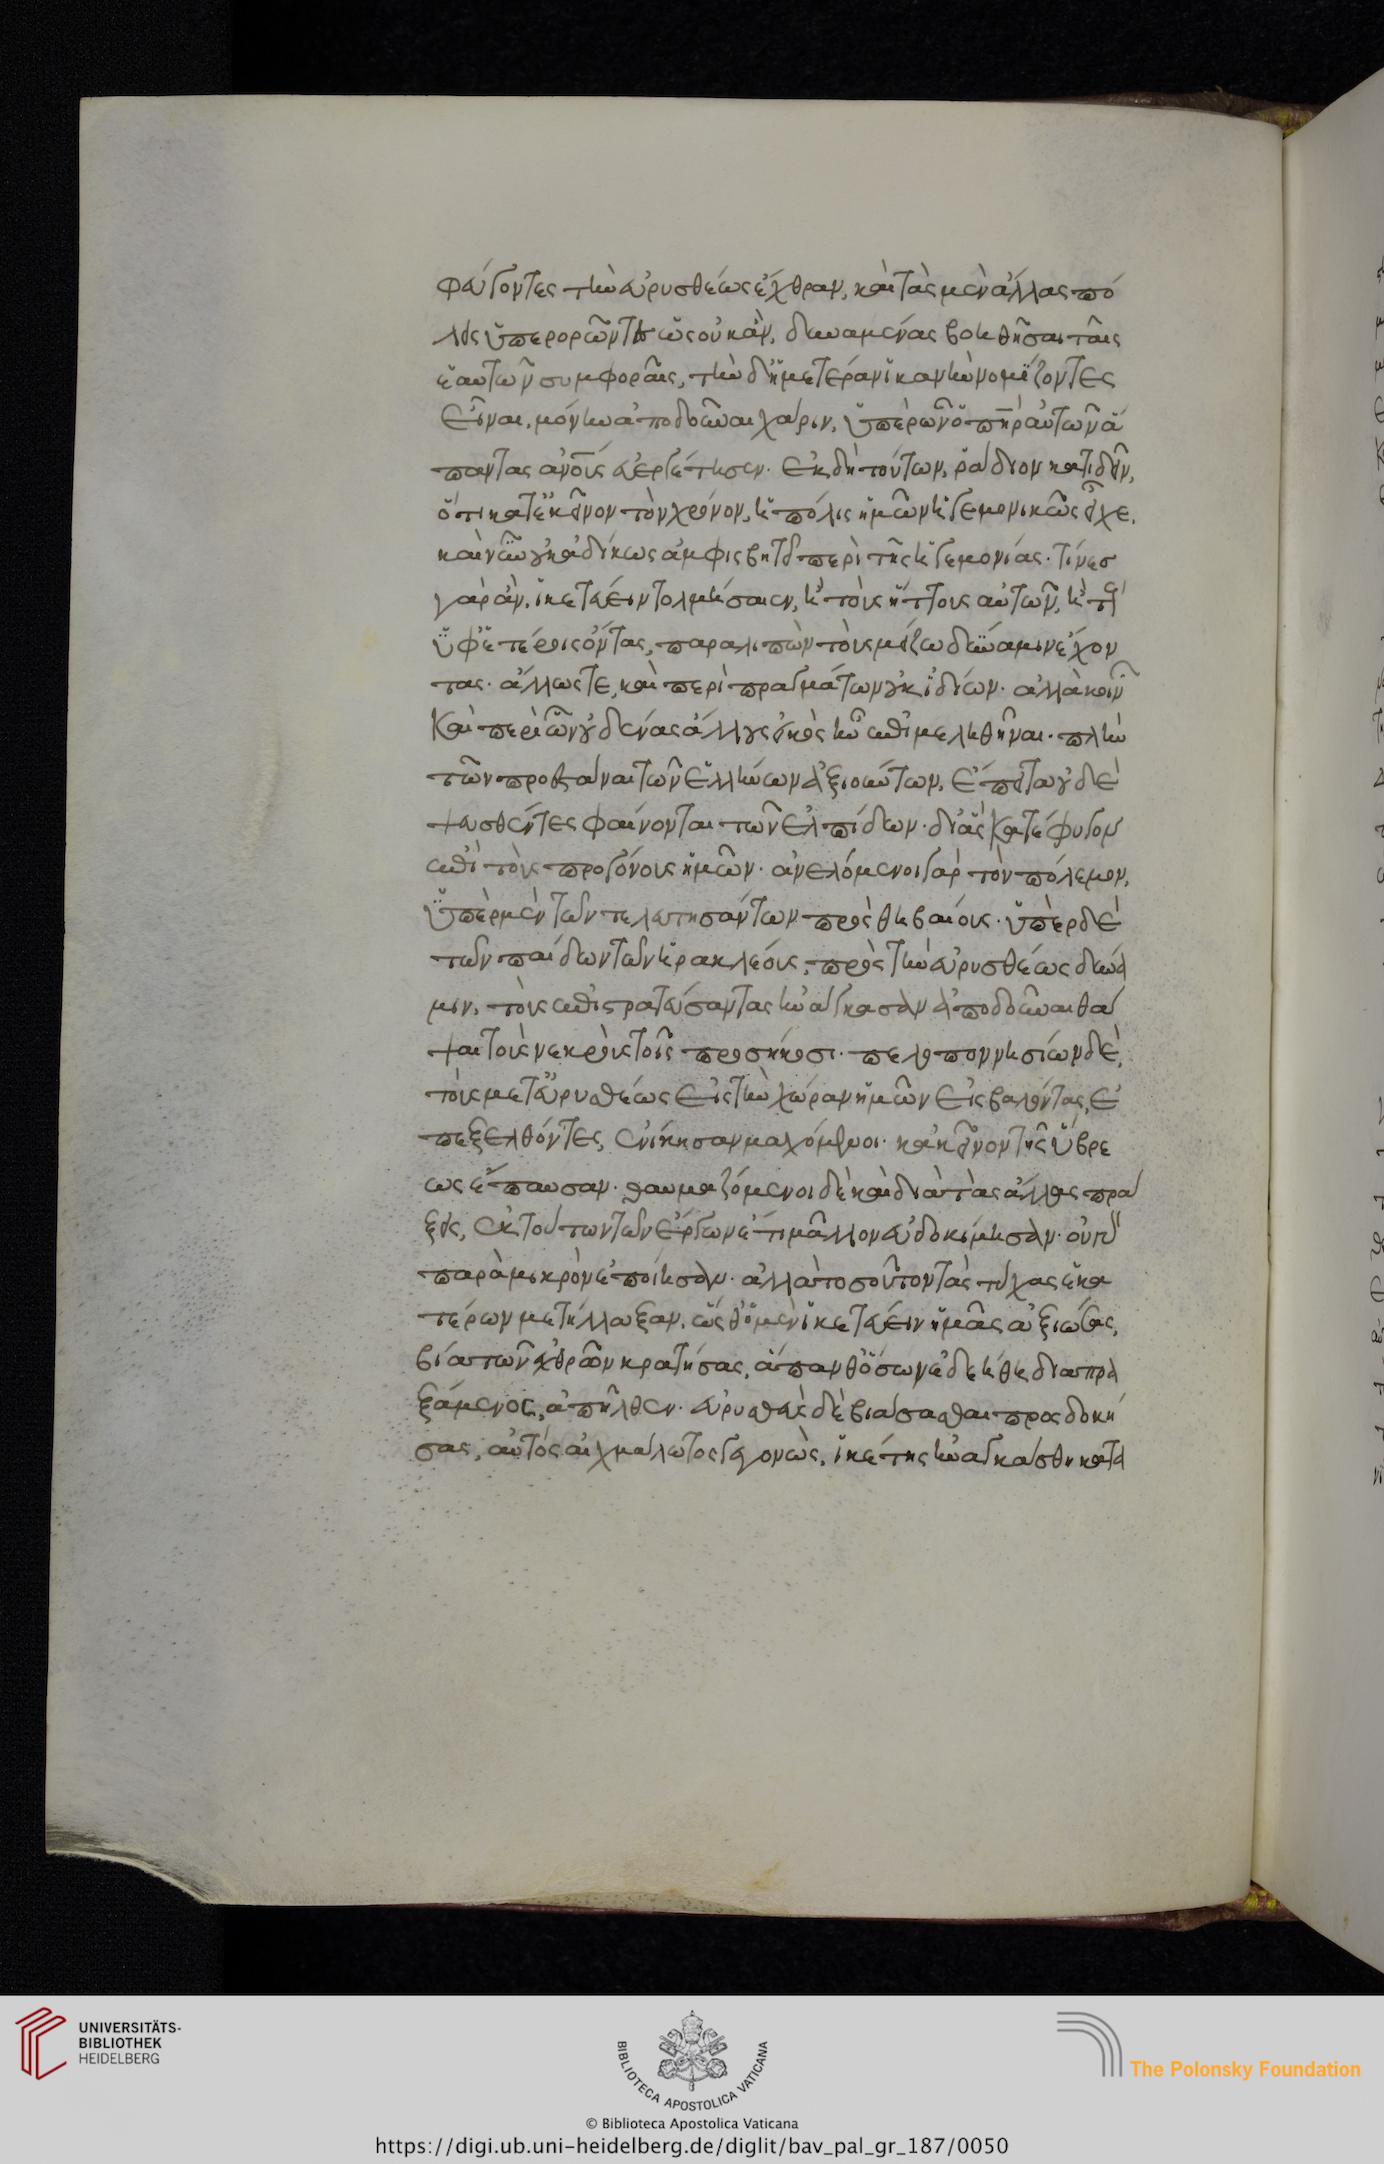 φεύγοντες τὴν εὐρυσθέως ἔχθραν, καὶ τὰς μὲν ἄλλας πό
λεις ὑπερορῶντες ὡς οὐκ ἂν, δυναμένας βοηθῆσαι ταῖς
ἑαυτῶν συμφοραῖς, τὴν δ' ἡμετέραν ἱκανὴν νομίζοντες
εἶναι, μόνην ἀποδοῦναι χάριν, ὑπὲρ ὧν ὁ πηρ αὐτῶν ἅ
παντας ἀνους εὐεργέτησεν· ἐκ δὴ τούτων, ῥάδιον κατιδεῖν,
ὅτι κατ' ἐκεῖνον τὸν χρόνον, ἡ πόλις ἡμῶν ἡγεμονικῶς εἶχε,
καὶ νῦν οὐκ ἀδίκως ἀμφισβητεῖ περὶ τῆς ἡγεμονίας· τίνες
γὰρ ἂν, ἱκετεύειν τολμήσαιεν, ἢ τοὺς ἥττους αὐτῶν, ἢ τοὺς
ὑφ' ἑτέροις ὄντας, παραλιπὼν τοὺς μείζω δύναμιν ἔχον
τας· ἄλλως τε, καὶ περὶ πραγμάτων οὐκ ἰδίων· ἀλλὰ κοινῶν
καὶ περὶ ὧν οὐδένας ἄλλους εἰκὸς ἦν ἐπιμεληθῆναι· πλὴν
τῶν προεστάναι τῶν ἑλλήνων ἀξιούντων, ἔπειτα οὐδὲ
ψευσθέντες φαίνονται τῶν ἐλπίδων· δι' ἃς κατέφυγον
ἐπὶ τοὺς προγόνους ἡμῶν· ἀνελόμενοι γὰρ τὸν πόλεμον,
ὑπὲρ μὲν τῶν τελευτησάντων πρὸς θηβαίους· ὑπὲρ δὲ
τῶν παίδων τῶν ἡρακλέους, πρὸς τὴν εὐρυσθέως δύνα
μιν, τοὺς ἐπιστρατεύσαντας ἠνάγκασαν ἀποδοῦναι θά
ψαι τοὺς νεκροὺς τοῖς προσήκουσι· πελοποννησίων δὲ,
τοὺς μετ' εὐρυσθέως εἰς τὴν χώραν ἡμῶν εἰσβαλόντας, ἐ
πεξελθόντες, ἐνίκησαν μαχόμενοι· κἀκεῖνον τῆς ὕβρε
ως ἔπαυσαν· θαυμαζόμενοι δὲ καὶ διὰ τὰς ἄλλας πρά
ξεις, ἐκ τούτων τῶν ἔργων ἔτι μᾶλλον εὐδοκίμησαν· οὐ γὰρ
παρὰ μικρὸν ἐποίησαν· ἀλλὰ τοσοῦτον τὰς τύχας ἑκα
τέρων μετήλλαξαν, ὥσθ' ὁ μὲν ἱκετεύειν ἡμᾶς ἀξιώσας,
βία τῶν ἐχθρῶν κρατήσας, ἅπανθ' ὅσων ἐδεήθη διαπρα
ξάμενος, ἀπῆλθεν· εὐρυσθεὺς δὲ βιάσασθαι προσδοκή
σας, αὐτὸς αἰχμάλωτος γενόμενος, ἱκέτης ἠναγκάσθη κατα
UNIVERSITÄTS-
BIBLIOTHEK
HEIDELBERG
BIBLIOTECA APOSTOLICA VATICANA
The Polonsky Foundation
© Biblioteca Apostolica Vaticana
https://digi.ub.uni-heidelberg.de/diglit/bav_pal_gr_187/0050